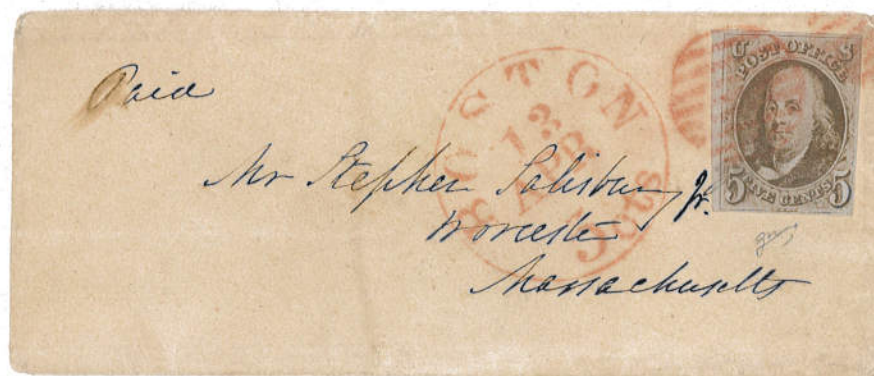 Paid
BOSTON
13
APR
5 cts
U S
POST OFFICE
5 FIVE CENTS 5
Mr Stephen Salisbury Jr.
Worcester
Massachusetts